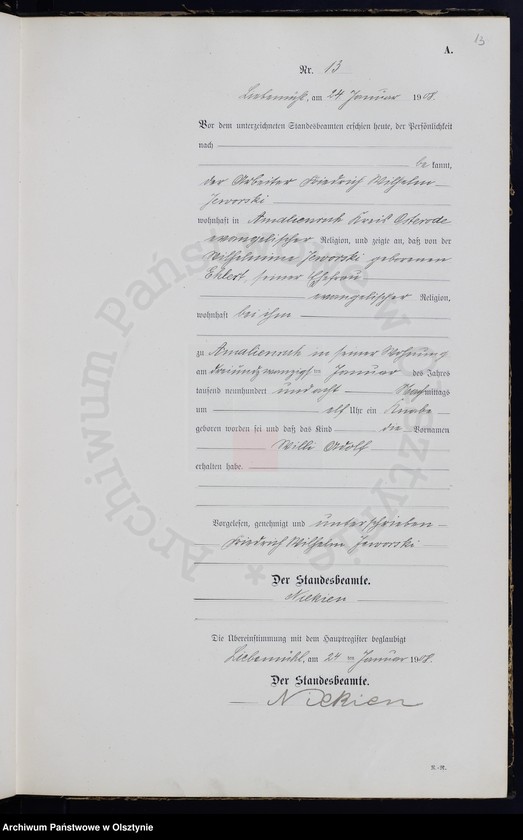 13
A.
Nr. 13
Liebemühl, am 24 Januar 1908.
Vor dem unterzeichneten Standesbeamten erschien heute, der Persönlichkeit
nach
be kannt,
der Arbeiter Friedrich Wilhelm
Jeworski
wohnhaft in Amalienruh Kreis Osterode
evangelischer Religion, und zeigte an, daß von der
Wilhelmine Jeworski geborenen
Ehlert, seiner Ehefrau
evangelischer Religion,
wohnhaft bei ihm
zu Amalienruh in seiner Wohnung
am dreiundzwanzigsten Januar des Jahres
tausend neunhundert und acht Nachmittags
um elf Uhr ein Knabe
geboren worden sei und daß das Kind die Vornamen
Willi Adolf
erhalten habe.
Vorgelesen, genehmigt und unterschrieben
Friedrich Wilhelm Jeworski
Der Standesbeamte.
Nickien
Die Übereinstimmung mit dem Hauptregister beglaubigt
Liebemühl, am 24 ten Januar 1908.
Der Standesbeamte.
Nickien
Archiwum Państwowe w Olsztynie *
Archiwum Państwowe w Olsztynie